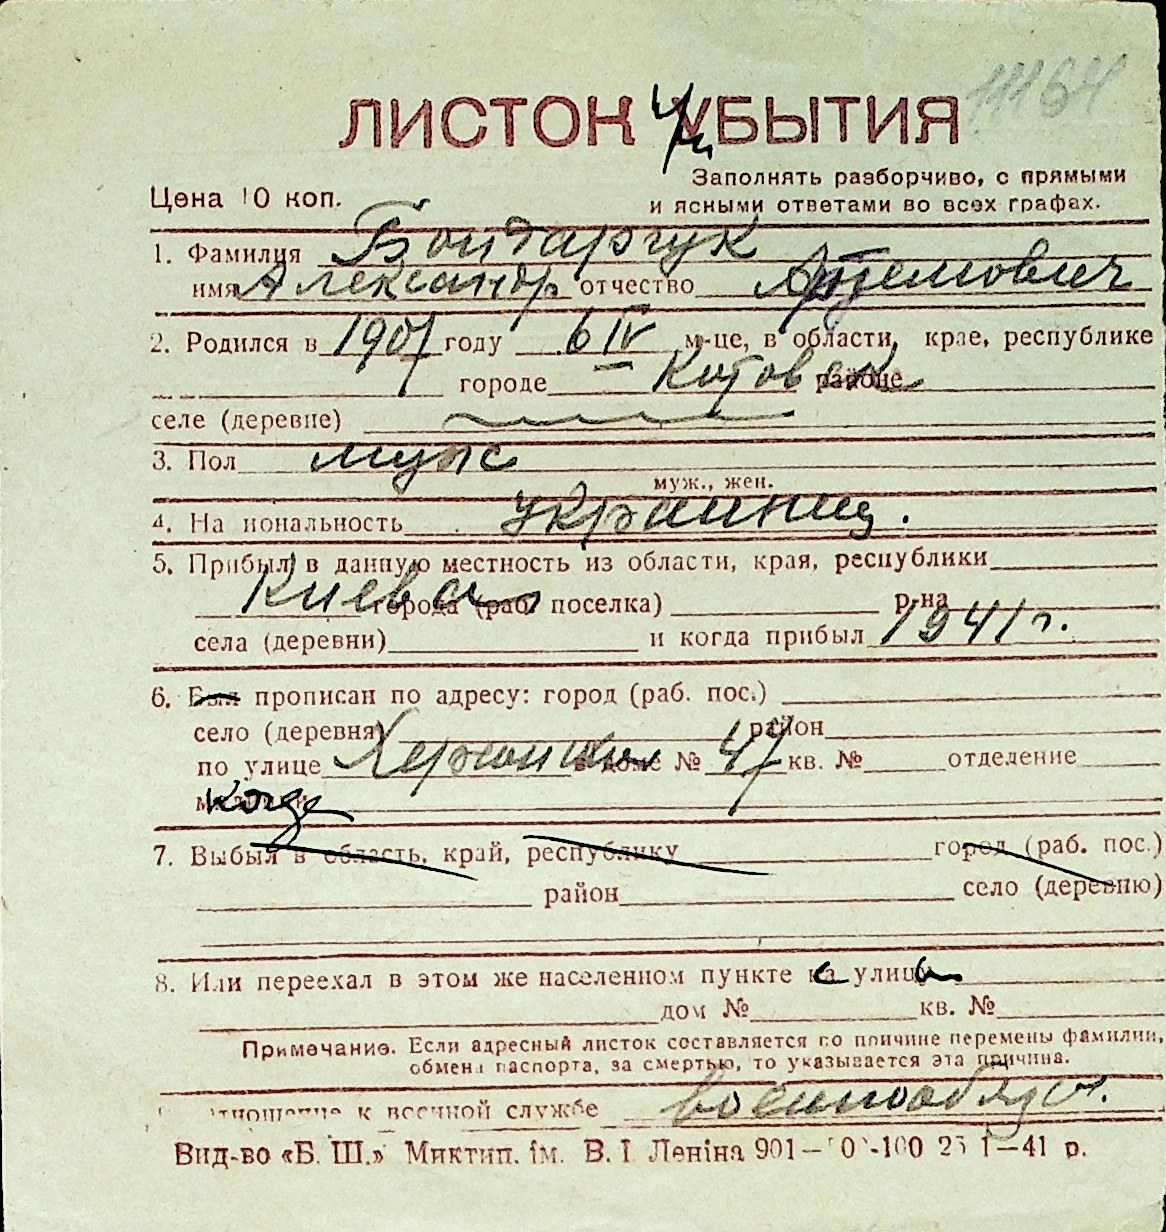 11164
ЛИСТОК УБЫТИЯ
Заполнять разборчиво, с прямыми
Цена 10 коп. и ясными ответами во всех графах.
1. Фамилия Бондарчук
имя Александр отчество Артемович
2. Родился в 1907 году 6 IV м-це, в области, крае, республике
городе Котовск районе
селе (деревне)
3. Пол мужс
муж., жен.
4. На иональность украинец.
5. Прибыл в данную местность из области, края, республики
Киева города (раб. поселка) р-на
села (деревни) и когда прибыл 1941 г.
6. Был прописан по адресу: город (раб. пос.)
село (деревня) район
по улице Херсонская в доме № 47 кв. № отделение
когда
7. Выбыл в область, край, республику город (раб. пос.)
район село (деревню)
8. Или переехал в этом же населенном пункте с улицы
дом № кв. №
Примечание. Если адресный листок составляется по причине перемены фамилии,
обмена паспорта, за смертью, то указывается эта причина.
тношение к военной службе военнообяз.
Вид-во «Б. Ш.» Миктип. ім. В. І. Леніна 901— 0 -100 25 I—41 р.